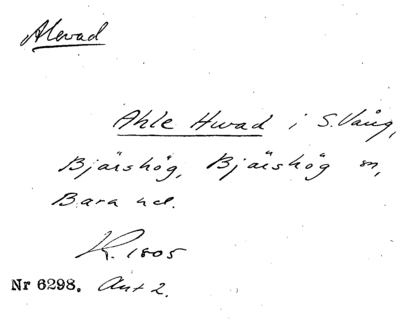 Alevad
Ahle Hwad i S. Vång,
Bjärshög, Bjärshög sn,
Bara hd.
K. 1805
Nr 6298. Akt 2.